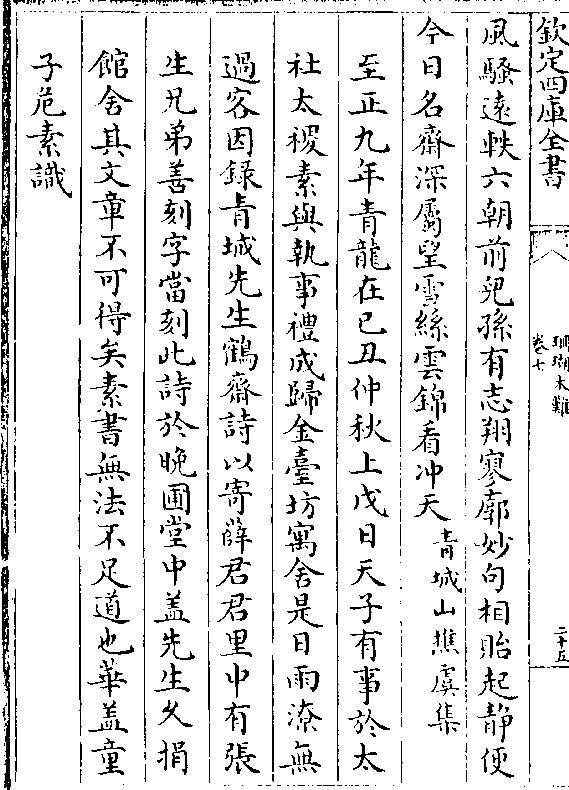 欽定四庫全書
珊瑚木難
卷七
二十五
風騷遠軼六朝前兒孫有志翔寥廓妙句相貽起靜便
今日名齋深屬望雪絲雲錦看冲天
青城山樵虞集
至正九年青龍在己丑仲秋上戊日天子有事於太
社太稷素與執事禮成歸金臺坊寓舍是日雨潦無
過客因録青城先生鶴齋詩以寄薛君君里中有張
生兄弟善刻字當刻此詩於晩圃堂中盖先生久捐
館舍其文章不可得矣素書無法不足道也華盖童
子危素識